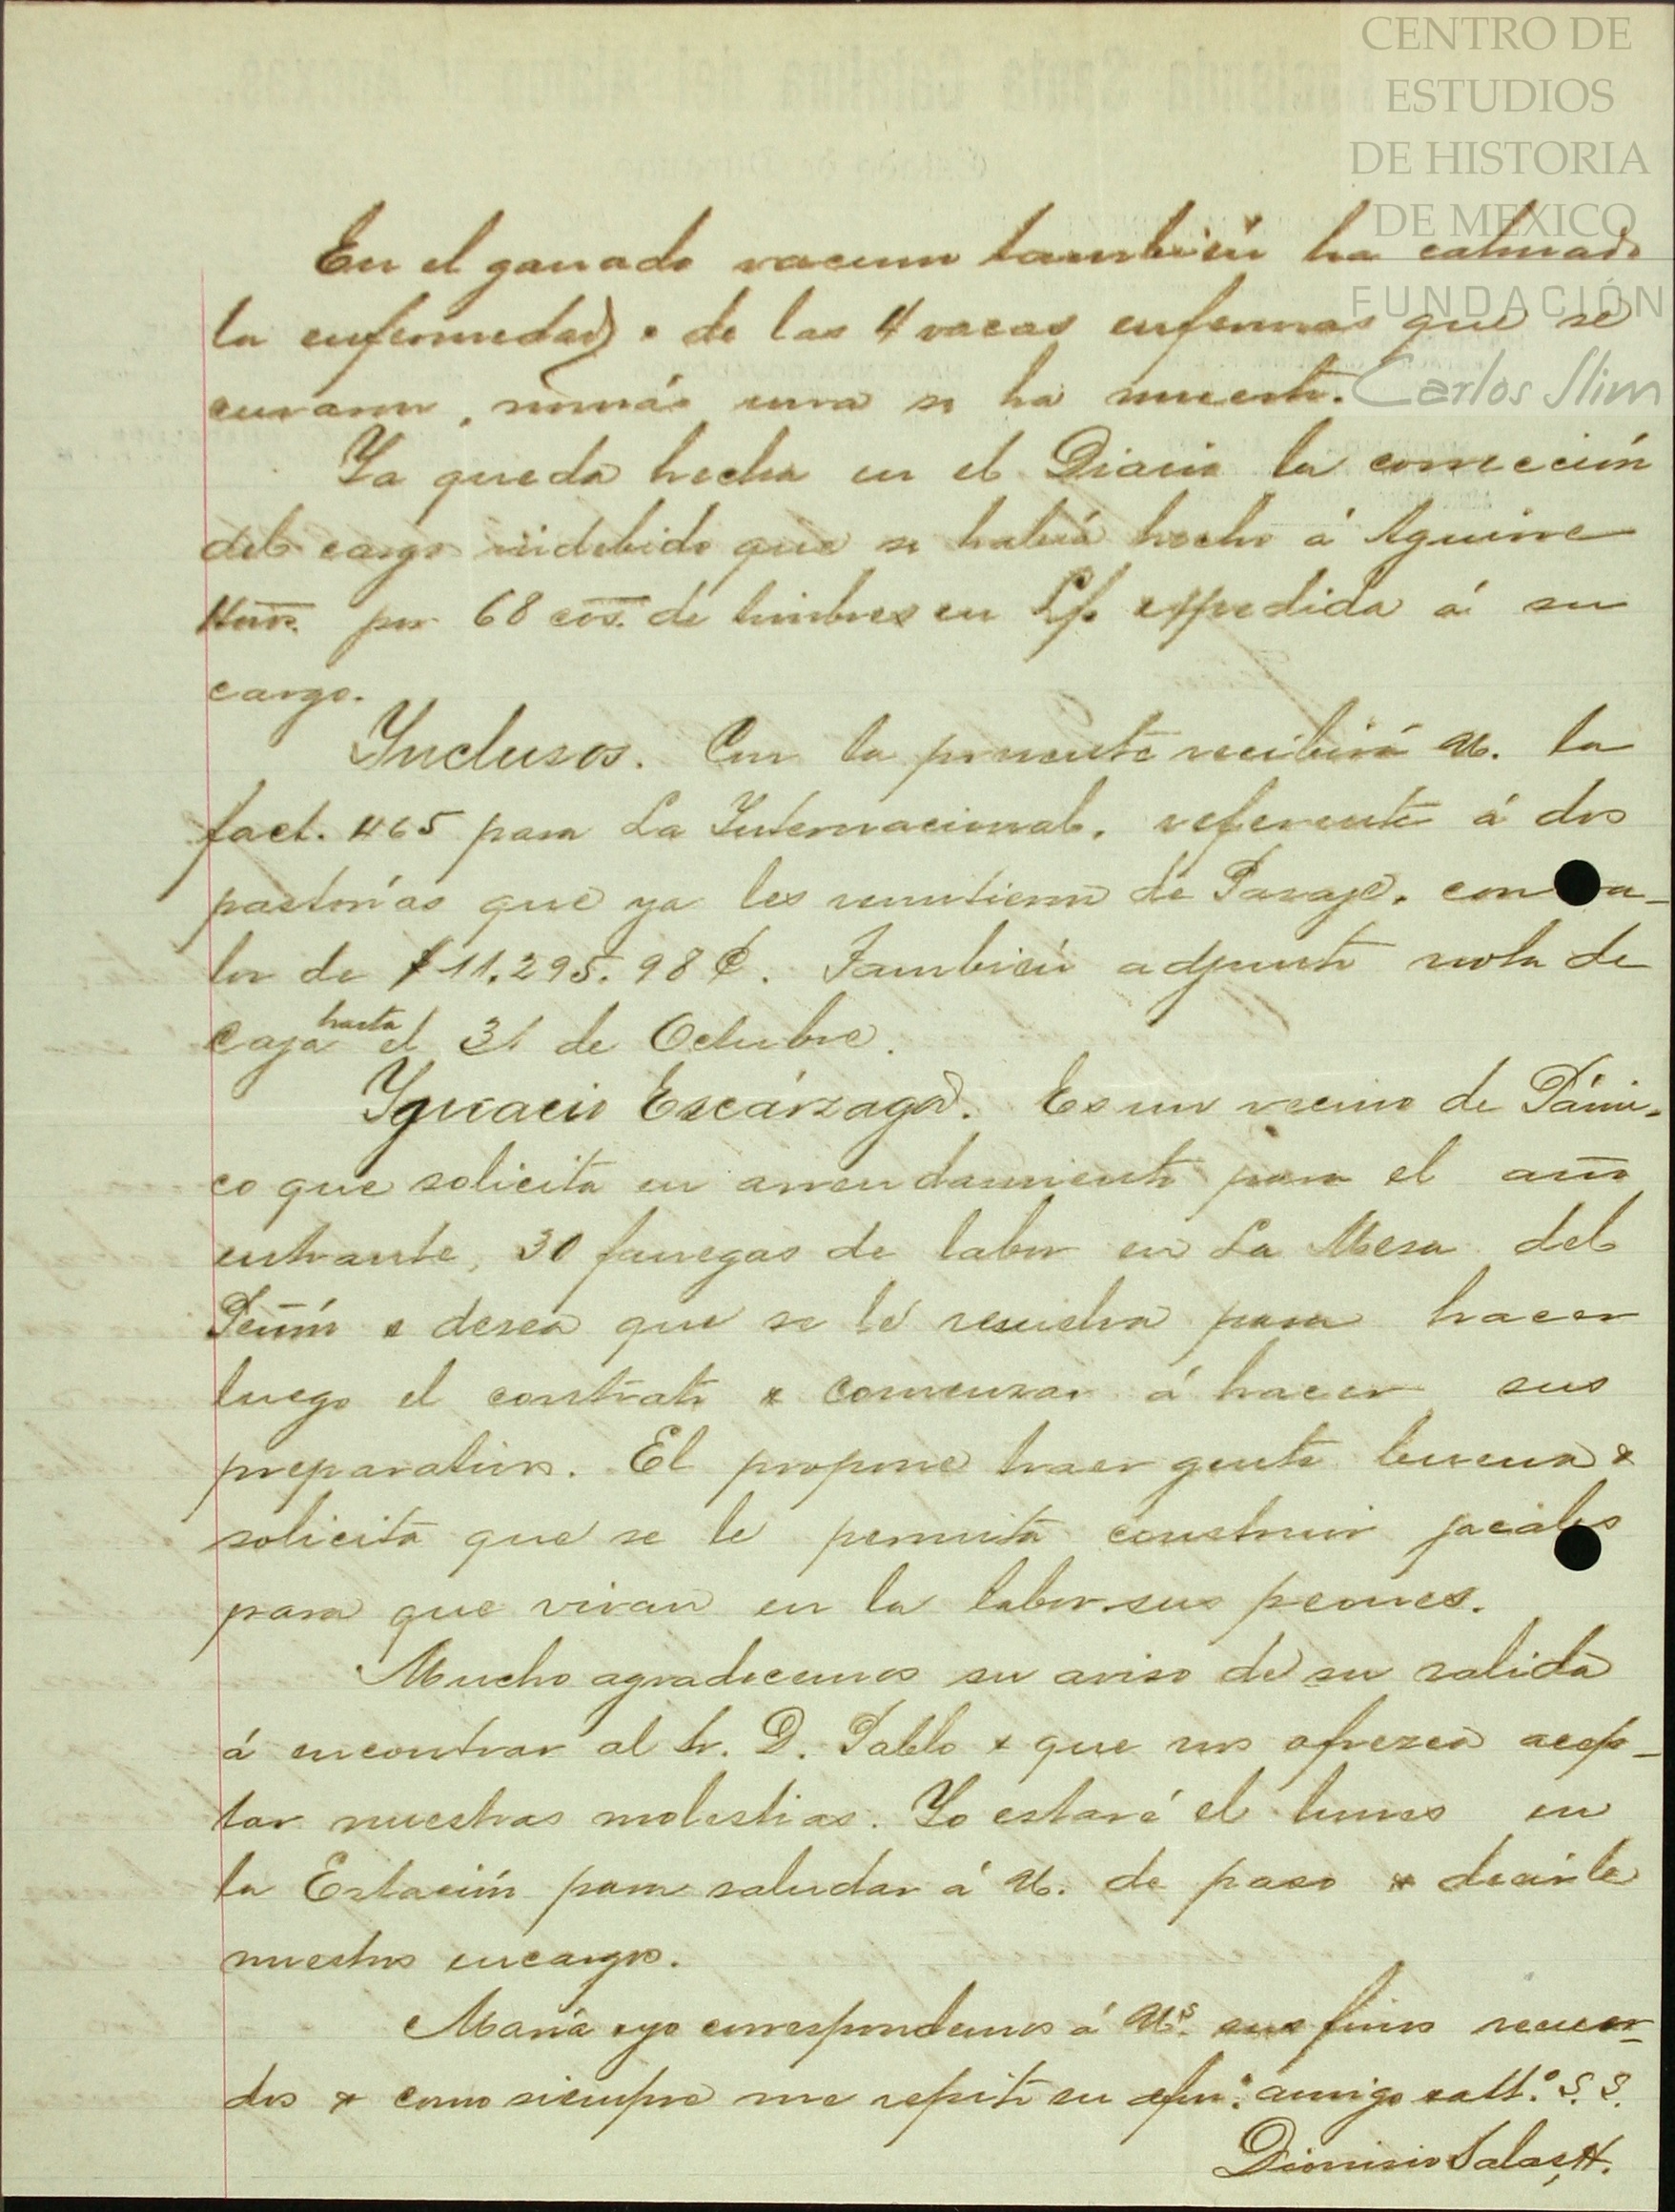 CENTRO DE
ESTUDIOS
DE HISTORIA
DE MEXICO
FUNDACIÓN
Carlos Slim
En el ganado vacuno también ha calmado
la enfermedad & de las 4 vacas enfermas que se
curaron, nomás una se ha muerto.
Ya queda hecha en el Diario la corrección
del cargo indebido que se había hecho á Aguirre
Hnos. por 68 cos. de timbres en L/. expedida á su
cargo.
Inclusos. Con la presente recibirá U. la
fact. 465 para La Internacional, referente á dos
pastorías que ya les remitieron de Pasaje, con va-
lor de $11.295.98 ¢. También adjunto nota de
Caja hasta el 31 de Octubre.
Ygnacio Escárzaga. Es un vecino de Pánu-
co que solicita en arrendamiento para el año
entrante, 30 fanegas de labor en La Mesa del
Peñón & desea que se le resuelva para hacer
luego el contrato & comenzar á hacer sus
preparativos. El propone traer gente buena &
solicita que se le permita construir jacales
para que vivan en la labor sus peones.
Mucho agradecemos su aviso de su salida
á encontrar al Sr. D. Pablo & que nos ofrezca acep-
tar nuestras molestias. Yo estaré el lunes en
la Estación para saludar á U. de paso & decirle
nuestros encargos.
María & yo correspondemos á Us. sus finos recuer-
dos & como siempre me repito su afmo. amigo & att.º S. S.
Dionisio Salas H.